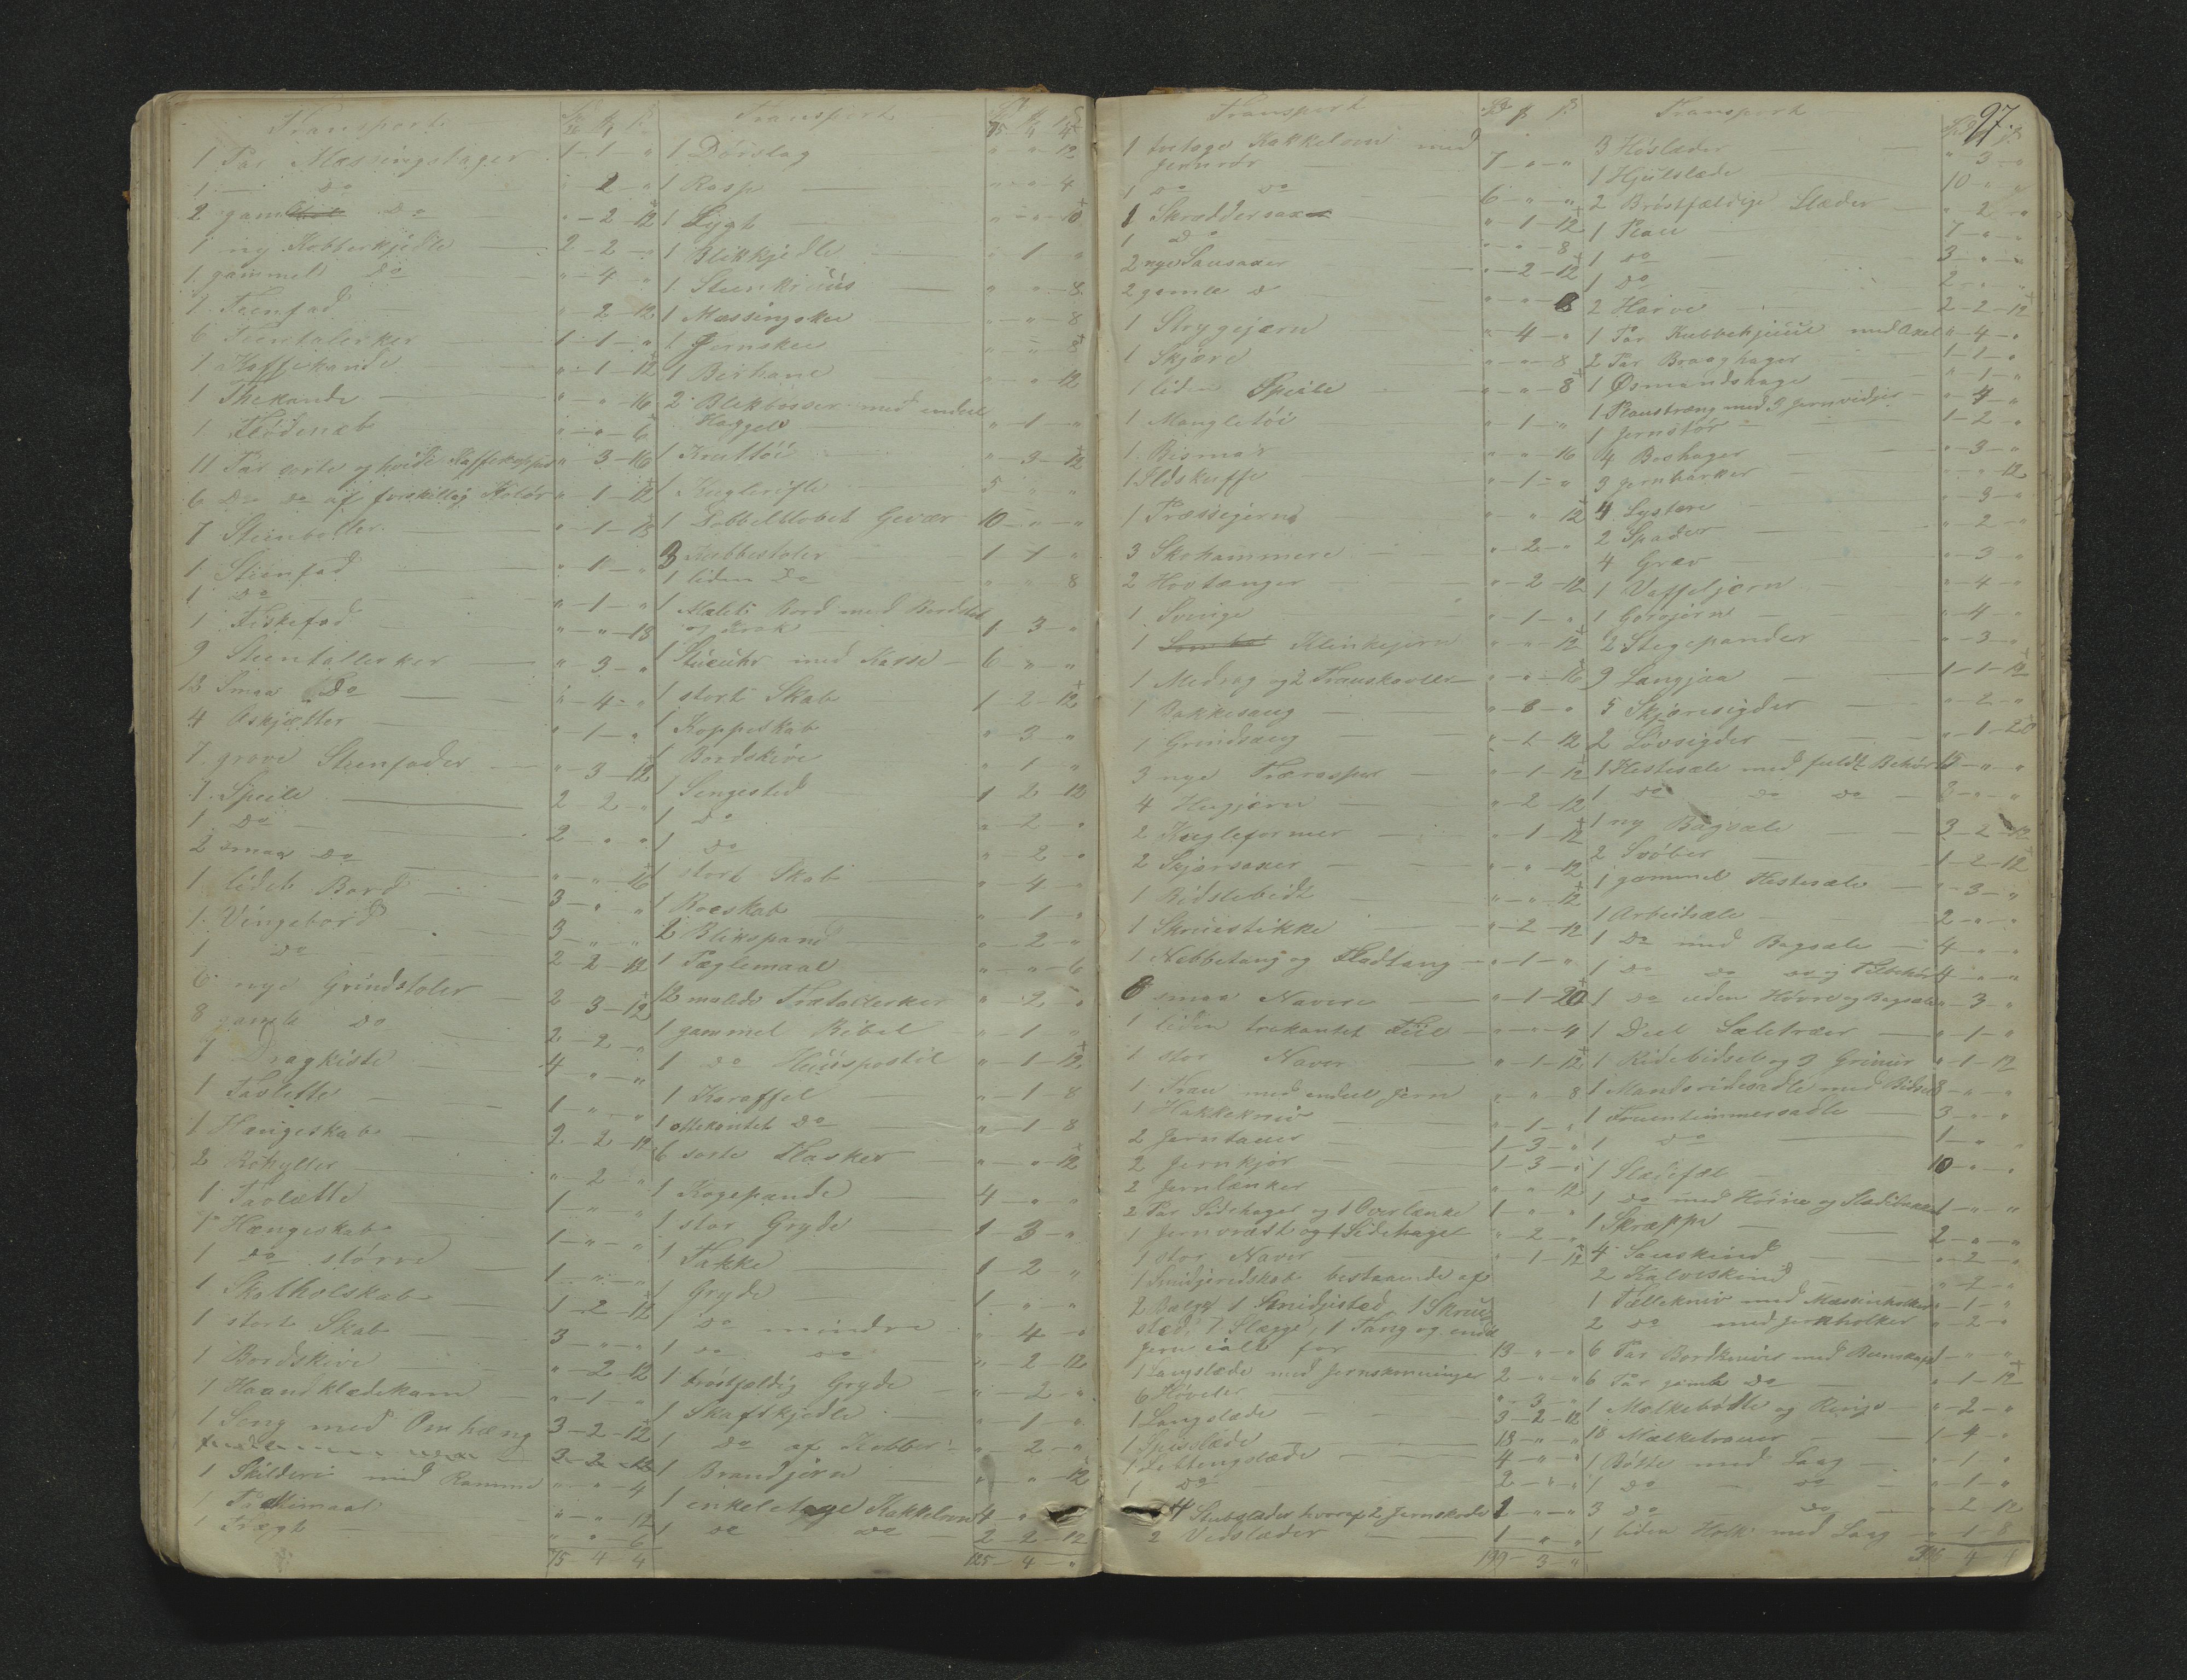 Transport
1 Par Messingstager 1-1-"
1 — Do " 2 - "
2 gamle Do "-2-12
1 ny Kobberkjedle 2-2-"
1 gammel Do "-4-"
1 Teenfad "-2-12
6 Teentalerker 1-1-"
1 Kaffekande "-1-12
1 Thekande "-"-16
1 Flødenæb "-"-6
11 Par sorte og hvide Kaffekopper "-3-16
6 Do Do af forskjellig Kolør "-1-12
7 Steenboller "-1-18
1 Steenfad "-1-"
1 Do "-1-"
1 Fiskefad "-"-18
9 Steentallerker "-3-"
13 Smaa Do "-4-"
4 Askjætter "-1-"
7 grove Steenfader "-3-12
1 Speile 2-2-"
1 Do 2-"-"
2 smaa Do "-"-16
1 lidet Bord 3-"-"
1 Vingebord 3-"-"
1 Do 2-2-12
6 nye Grindstoler 2-3-12
8 gamle Do 2-2-"
1 Dragkiste 4-"-"
1 Tavlette 1-"-"
1 Hængeskab 2-2-12
2 Røhyller "-2-"
1 Tavlette 1-"-"
1 Hængeskab 1-"-"
1 Do større 1-"-"
1 Skatholskab 1-2-12
1 stort Skab 3-"-"
1 Bordskive "-2-12
1 Haandklædekam "-1-"
1 Seng med Omhæng 3-2-12
1 Skilderi med Ramme "-"-4
1 "-"-12
1 Trægt "-"-6
75-4-4
Transport 75 4 4
1 Dørslag "-"-12
1 Rasp "-"-4
1 Lygt "-"-10
1 Blikkjedle "-1-"
1 Steenkruus "-"-8
1 Messingskee "-"-8
1 Jernskee "-"-8
1 Beihane "-"-12
2 Blekbøsser med endeel
Haggel "-1-"
1 Kruttøi "-3-12
1 Kuglerifle 5-"-"
1 Dobbelløbet Gevær 10-"-"
3 Kubbestoler 1-1-"
1 liden Do "-"-8
1 Malet Bord med Bord
og Krak 1-3-"
1 Stueuhr med Kasse 6-"-"
1 stort Skab 1-2-12
1 Koppeskab "-3-"
1 Bordskive "-1-"
1 Sengested 1-2-12
1 Do "-2-"
1 Do "-2-"
1 stort Skab "-4-"
1 Roeskab "-1-"
2 Blikspand "-2-"
1 Pæglemaal "-"-6
12 malede Trætallerker "-2-"
1 gammel Bibel "-1-"
1 Do Huuspostil "-1-12
1 Karaffel "-1-8
1 ottekantet Do "-1-8
6 sorte Flasker "-"-12
1 Kogepande 4-"-"
1 stor Gryde 1-3-"
1 Takke 1-2-"
1 Gryde 1-"-"
1 Do mindre "-4-"
1 Do Do "-2-12
1 brøstfældig Gryde "-2-"
1 Skaftkjedle "-1-"
1 Do af Kobber "-2-"
1 Brandjern "-"-12
1 enkeletage Kakkelovn 4-"-"
1 Do Do 2-2-12
125-4-"
Transport
1 toetage Kakkelovn med
Jernrør 7-"-"
1 Do Do 6-"-"
1 Skræddersax "-1-12
1 Do "-"-8
2 nye Sausaxer "-2-12
2 gamle D "-"-8
1 Strygejern "-4-"
1 Skjære "-"-8
1 liden Speile "-"-8
1 Mangletøi "-1-"
1 Bismar "-"-16
1 Ildskuffe "-1-"
1 "-"-12
3 Skohammere "-2-"
2 Hovtænger "-2-12
1 Svinge "-1-"
1 Klinkejern "-"-12
1 Medrag og 2 "-"-16
1 Bakkesaug "-3-"
1 Grindsaug "-1-12
3 nye Træraspur "-1-12
4 Hugjern "-2-12
2 Kugleformer "-1-12
2 Skjørsaxer "-"-12
1 Bidslebidt "-"-12
1 Skruestikke "-2-12
1 Nebbetang og Fladtang "-1-"
8 smaa Navere "-1-20
1 liden trekantet Fiil "-"-4
1 stor Naver "-1-12
1 Trau med endeel Jern "-"-8
1 Hakkekniv "-1-"
2 Jerntauer 1-3-"
2 Jernkjør 1-3-"
2 Jernlænker "-"-12
2 Par Sidehager og 1 Overlænke 1-"-"
1 og 1 Sidehage "-2-"
1 stor Naver "-1-12
1 Smidjeredskab bestaaende af
2 Bælger 1 Smidjested, 1 Skrue
sted, 1 Slægge, 1 Tang og endeel
Jern ialt for 13-"-"
1 Langslæde med Jernskoninger 2-"-"
6 Høvler "-3-"
1 Langslæde 3-2-12
1 Spidslæde 13-"-"
1 Lettingslæde 4-"-"
1 Do 2-"-"
4 Stubslæder hvoraf 2 Jernskode 1-"-"
2 Vedslæder 1-"-"
199-3-"
Transport
97
3 Høslæder "-3-"
1 Hjulslæde 10-"-"
2 Brøstfældige Slæder "-2-"
1 Plau 7-"-"
1 Do 3-"-"
1 Do 2-"-"
2 Harve 2-2-12
1 Par Kubbehjuul med Axel "-4-"
2 Par Braaghager 1-2-"
1 Øsmundshage "-1-"
1 Plaustræng med 3 Jernvidjer "-4-"
1 Jernstør 1-2-"
4 Boshager "-3-"
3 Jernharker "-"-12
4 Lystere "-3-"
2 Spader "-2-"
4 Græv "-3-"
1 Vaffeljern "-4-"
1 Gorojern "-4-"
2 Stegepander "-3-"
9 Langjaa 1-1-12
5 Skjæresigder "-2-"
2 Løvsigder "-1-20
1 Hestesæle med fuldt Behør 15-"-"
1 Do Do Do 3-"-"
1 ny Bagsæle 3-2-12
2 Svøber 1-2-12
1 gammel Hestesæle "-3-"
1 Arbeidsæle 2-"-"
1 Do med Bagsæle 4-"-"
1 Do Do Do og Tilbehør 4-"-"
1 Do uden Høvre og Bagsæle "-3-"
1 Deel Sæletræer "-1-"
1 Ridebidsel og 3 Grimer "-1-12
1 Mandsridesadle med Bidsel 3-"-"
1 Fruentimmersadle 3-"-"
1 Do 1-"-"
1 Slædefæl 10-"-"
1 Do med Hørne og 1-"-"
1 Skræppe 2-"-"
4 Saueskind "-2-"
2 Kalveskind "-2-"
1 Tællekniv med Messingholker "-1-"
2 Do med Jernholker "-2-"
6 Par Bordknive med Beenskaft 1-"-"
6 Par gamle Do "-1-12
1 Mælkebøtte og Ringe "-2-"
18 Mælketrauer 1-4-"
1 Bøtte med Laag "-1-"
1 Do Do "-1-"
3 Do Do "-2-12
1 liden Holk med Laag "-1-8